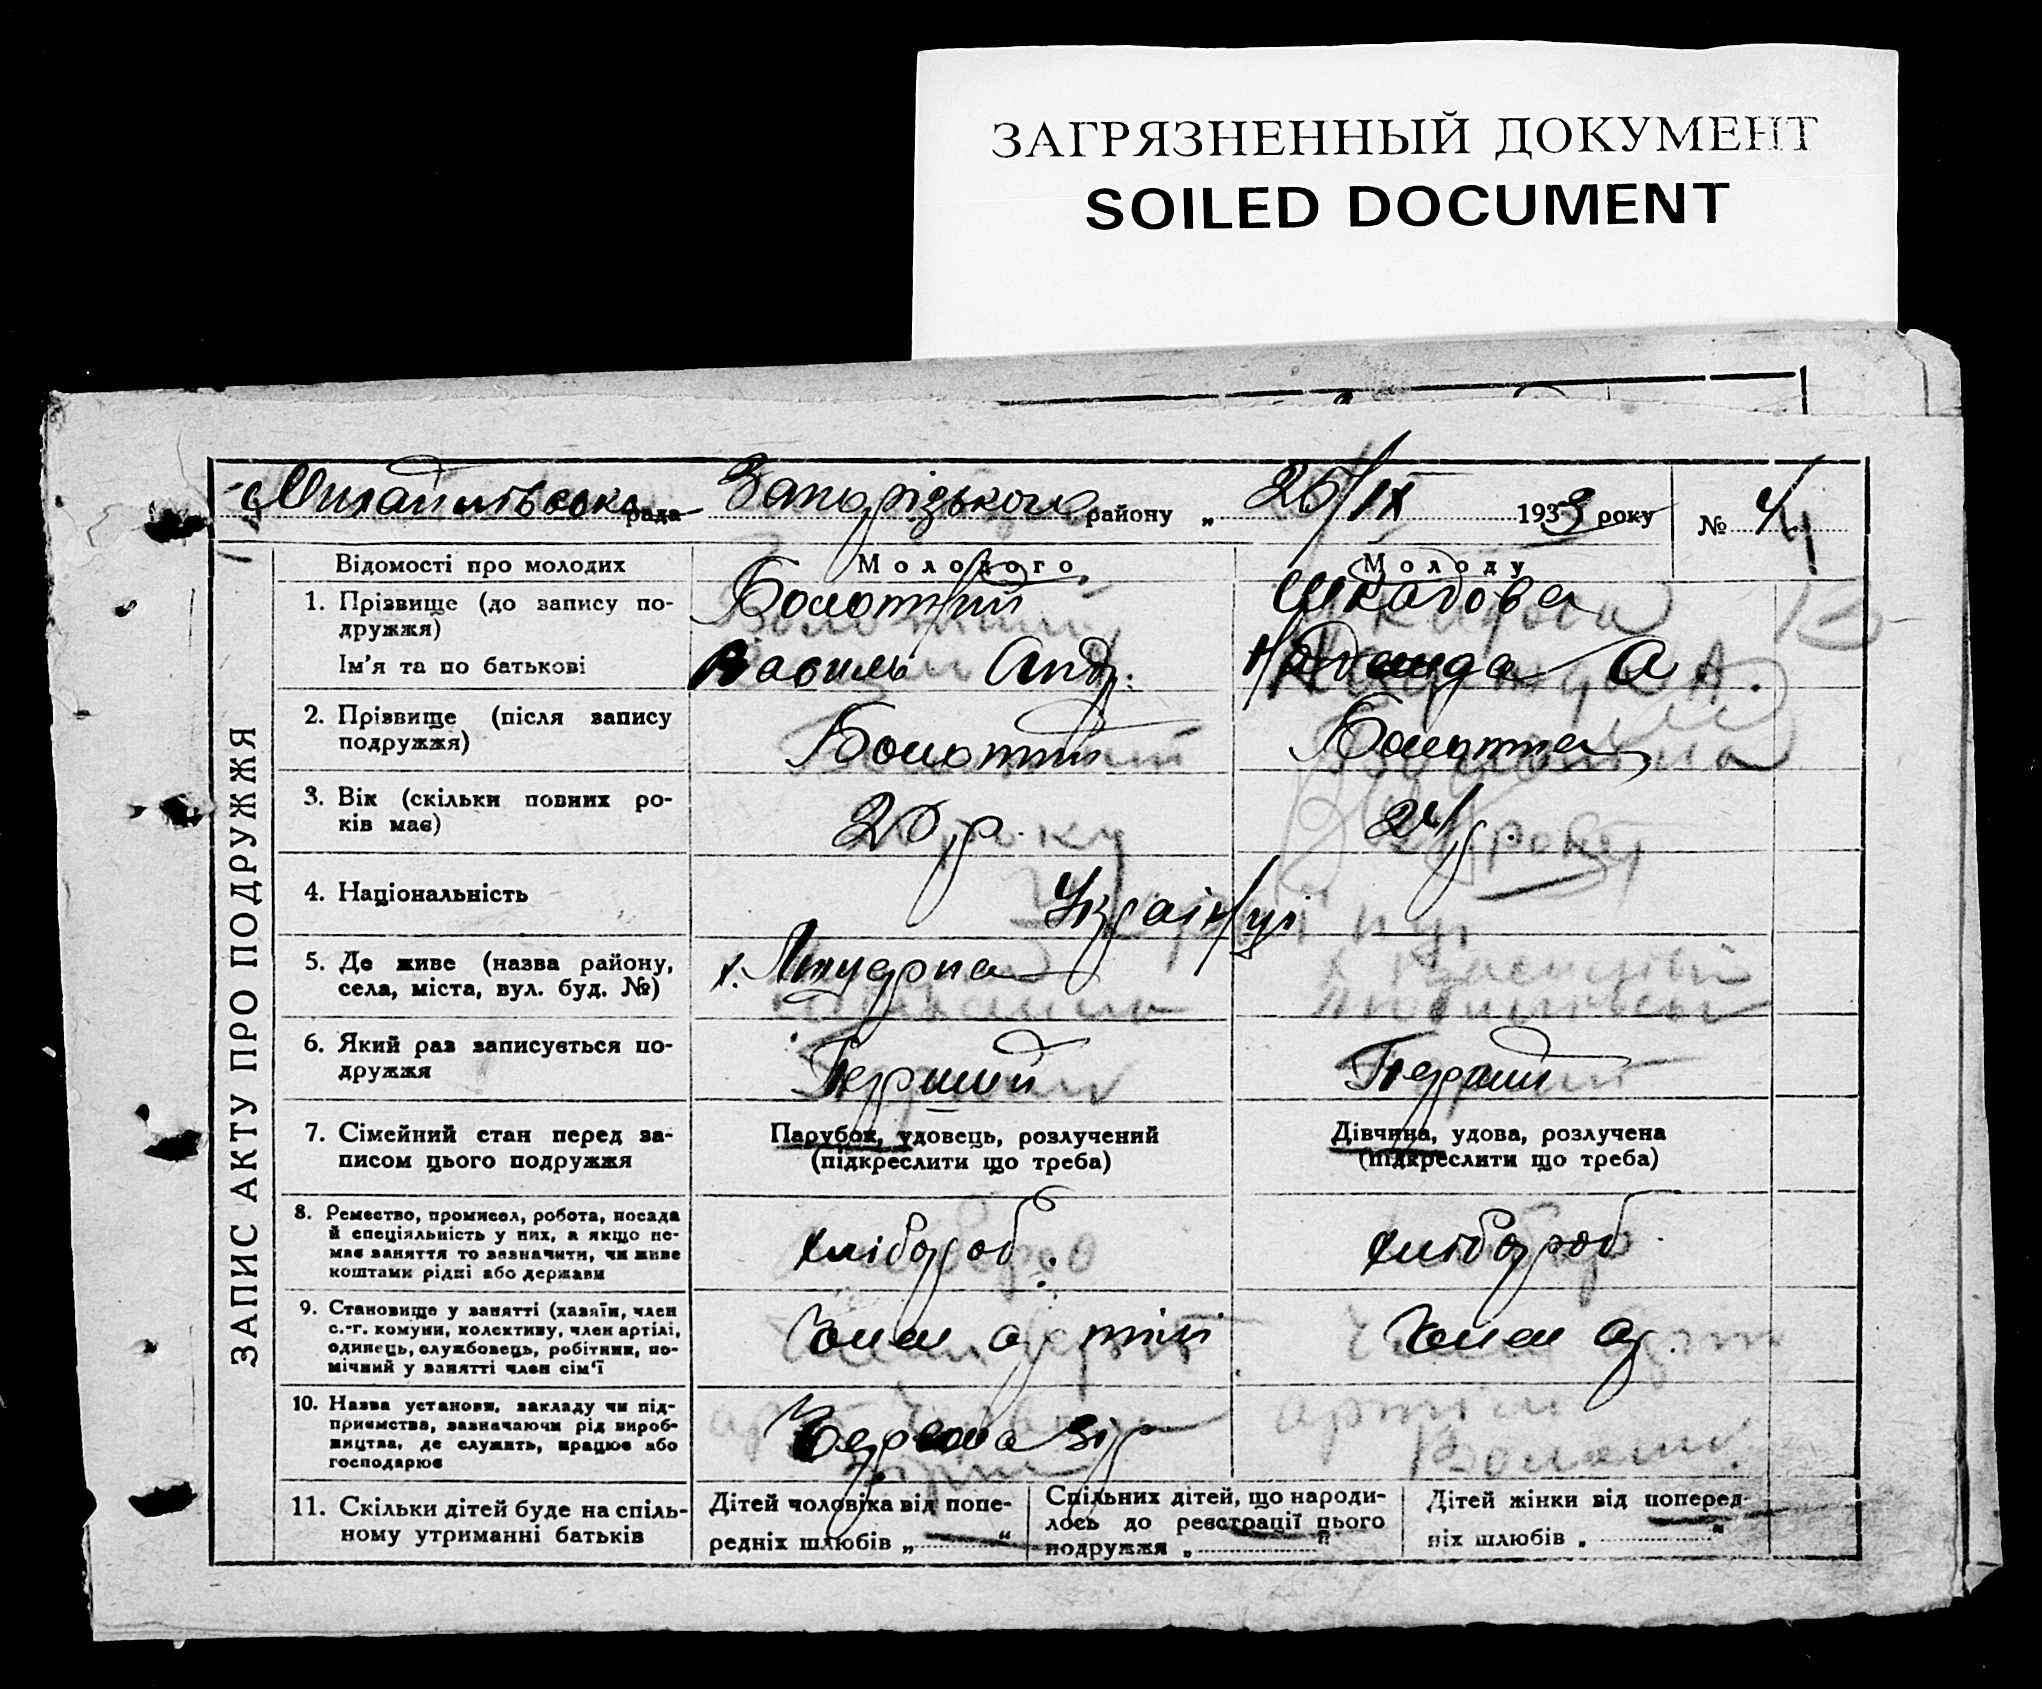 ЗАГРЯЗНЕННЫЙ ДОКУМЕНТ
SOILED DOCUMENT
Михайлівська рада Запорізького району „ 26/IX 1933 року № 4
ЗАПИС АКТУ ПРО ПОДРУЖЖЯ
Відомості про молодих Молодого Молоду
1. Прізвище (до запису по-
дружжя) Болотній Шкабова
Ім'я та по батькові Василь Анд. Надежда А.
2. Прізвище (після запису
подружжя) Болотній Болотна
3. Вік (скільки повних ро-
ків має) 20 р. 21 р.
4. Національність Українці
5. Де живе (назва району,
села, міста, вул. буд. №) х.
6. Який раз записується по-
дружжя Перший Перший
7. Сімейний стан перед за-
писом цього подружжя
Парубок, удовець, розлучений
(підкреслити що треба)
Дівчина, удова, розлучена
(підкреслити що треба)
8. Ремество, промисел, робота, посада
й спеціяльність у них, а якщо не-
має заняття то зазначити, чи живе
коштами рідні або держави
хлібороб. хлібороб
9. Становище у занятті (хазяїн, член
с.-г. комуни, колективу, член артілі,
одинець, службовець, робітник, по-
мічний у занятті член сім'ї
Член артілі Член ар.
10. Назва установи, закладу чи під-
приємства, зазначаючи рід вироб-
ництва, де служить, працює або
господарює
Червона зір
11. Скільки дітей буде на спіль-
ному утриманні батьків
Дітей чоловіка від попе-
редніх шлюбів „ — “
Спільних дітей, що народи-
лось до реєстрації цього
подружжя „ — “
Дітей жінки від поперед-
ніх шлюбів „ — “